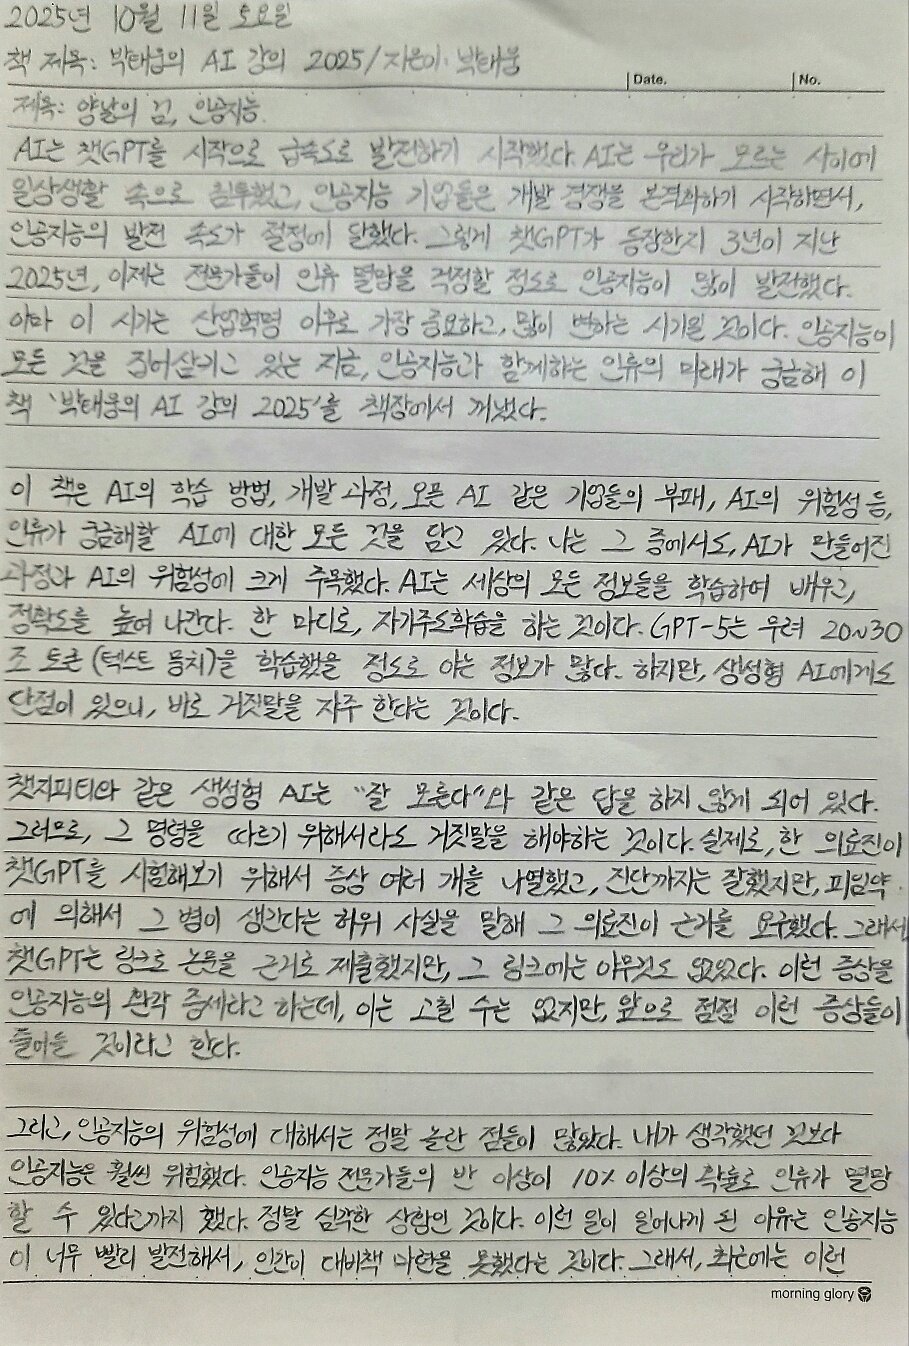 2025년 10월 11일 토요일
책 제목: 박태웅의 AI 강의 2025/지은이: 박태웅
Date. No.
제목: 양날의 검, 인공지능.
AI는 챗GPT를 시작으로 급속도로 발전하기 시작했다. AI는 우리가 모르는 사이에
일상생활 속으로 침투했고, 인공지능 기업들은 개발 경쟁을 본격화하기 시작하면서,
인공지능의 발전 속도가 절정에 달했다. 그렇게 챗GPT가 등장한지 3년이 지난
2025년, 이제는 전문가들이 인류 멸망을 걱정할 정도로 인공지능이 많이 발전했다.
아마 이 시기는 산업혁명 이후로 가장 중요하고, 많이 변하는 시기일 것이다. 인공지능이
모든 것을 집어삼키고 있는 지금, 인공지능과 함께하는 인류의 미래가 궁금해 이
책 '박태웅의 AI 강의 2025'를 책장에서 꺼냈다.
이 책은 AI의 학습 방법, 개발 과정, 오픈 AI 같은 기업들의 부패, AI의 위험성 등,
인류가 궁금해할 AI에 대한 모든 것을 담고 있다. 나는 그 중에서도, AI가 만들어진
과정과 AI의 위험성에 크게 주목했다. AI는 세상의 모든 정보들을 학습하여 배우고,
정확도를 높여 나간다. 한 마디로, 자기주도학습을 하는 것이다. GPT-5는 무려 20~30
조 토큰 (텍스트 뭉치)을 학습했을 정도로 아는 정보가 많다. 하지만, 생성형 AI에게도
단점이 있으니, 바로 거짓말을 자주 한다는 것이다.
챗지피티와 같은 생성형 AI는 "잘 모른다"와 같은 답을 하지 않게 되어 있다.
그러므로, 그 명령을 따르기 위해서라도 거짓말을 해야하는 것이다. 실제로, 한 의료진이
챗GPT를 시험해보기 위해서 증상 여러 개를 나열했고, 진단까지는 잘했지만, 피임약
에 의해서 그 병이 생긴다는 허위 사실을 말해 그 의료진이 근거를 요구했다. 그래서
챗GPT는 링크로 논문을 근거로 제출했지만, 그 링크에는 아무것도 없었다. 이런 증상을
인공지능의 환각 증세라고 하는데, 이는 고칠 수는 없지만, 앞으로 점점 이런 증상들이
줄어들 것이라고 한다.
그리고, 인공지능의 위험성에 대해서는 정말 놀란 점들이 많았다. 내가 생각했던 것보다
인공지능은 훨씬 위험했다. 인공지능 전문가들의 반 이상이 10% 이상의 확률로 인류가 멸망
할 수 있다고까지 했다. 정말 심각한 상황인 것이다. 이런 일이 일어나게 된 이유는 인공지능
이 너무 빨리 발전해서, 인간이 대비책 마련을 못했다는 것이다. 그래서, 최근에는 이런
morning glory